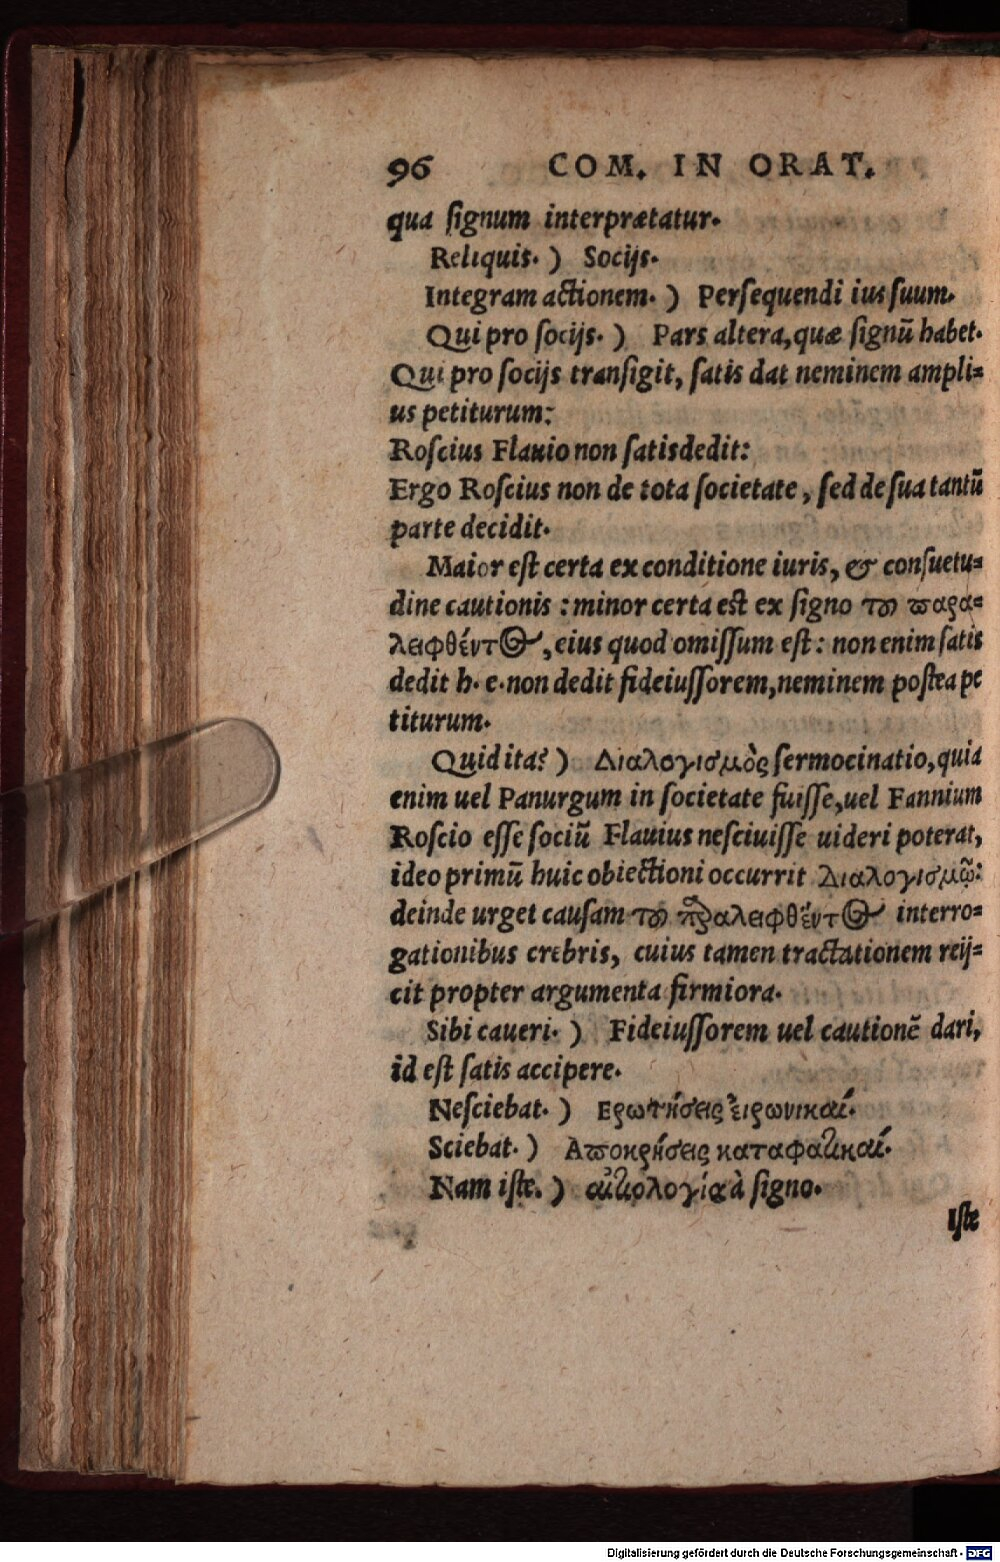 96 COM. IN ORAT.
qua signum interprætatur.
Reliquis. ) Socijs.
Integram actionem. ) Persequendi ius suum.
Qui pro socijs. ) Pars altera, quæ signũ habet.
Qui pro socijs transigit, satis dat neminem ampli=
us petiturum:
Roscius Flauio non satisdedit:
Ergo Roscius non de tota societate, sed de sua tantũ
parte decidit.
Maior est certa ex conditione iuris, & consuetu=
dine cautionis : minor certa est ex signo τȣ παρα=
λειφθέντος, eius quod omissum est : non enim satis
dedit h. e. non dedit fideiussorem, neminem postea pe
titurum.
Quid ita? ) Διαλογισμὸς sermocinatio, quia
enim uel Panurgum in societate fuisse, uel Fannium
Roscio esse sociũ Flauius nesciuisse uideri poterat,
ideo primũ huic obiectioni occurrit Διαλογισμῷ:
deinde urget causam τȣ παραλειφθέντος interro=
gationibus crebris, cuius tamen tractationem reij=
cit propter argumenta firmiora.
Sibi caueri. ) Fideiussorem uel cautionẽ dari,
id est satis accipere.
Nesciebat. ) Ερωτήσεις ἐιρωνικαί.
Sciebat. ) Αποκρήσεις καταφατικαί.
Nam iste. ) αἰτιολογία à signo.
Iste
Digitalisierung gefördert durch die Deutsche Forschungsgemeinschaft - DFG